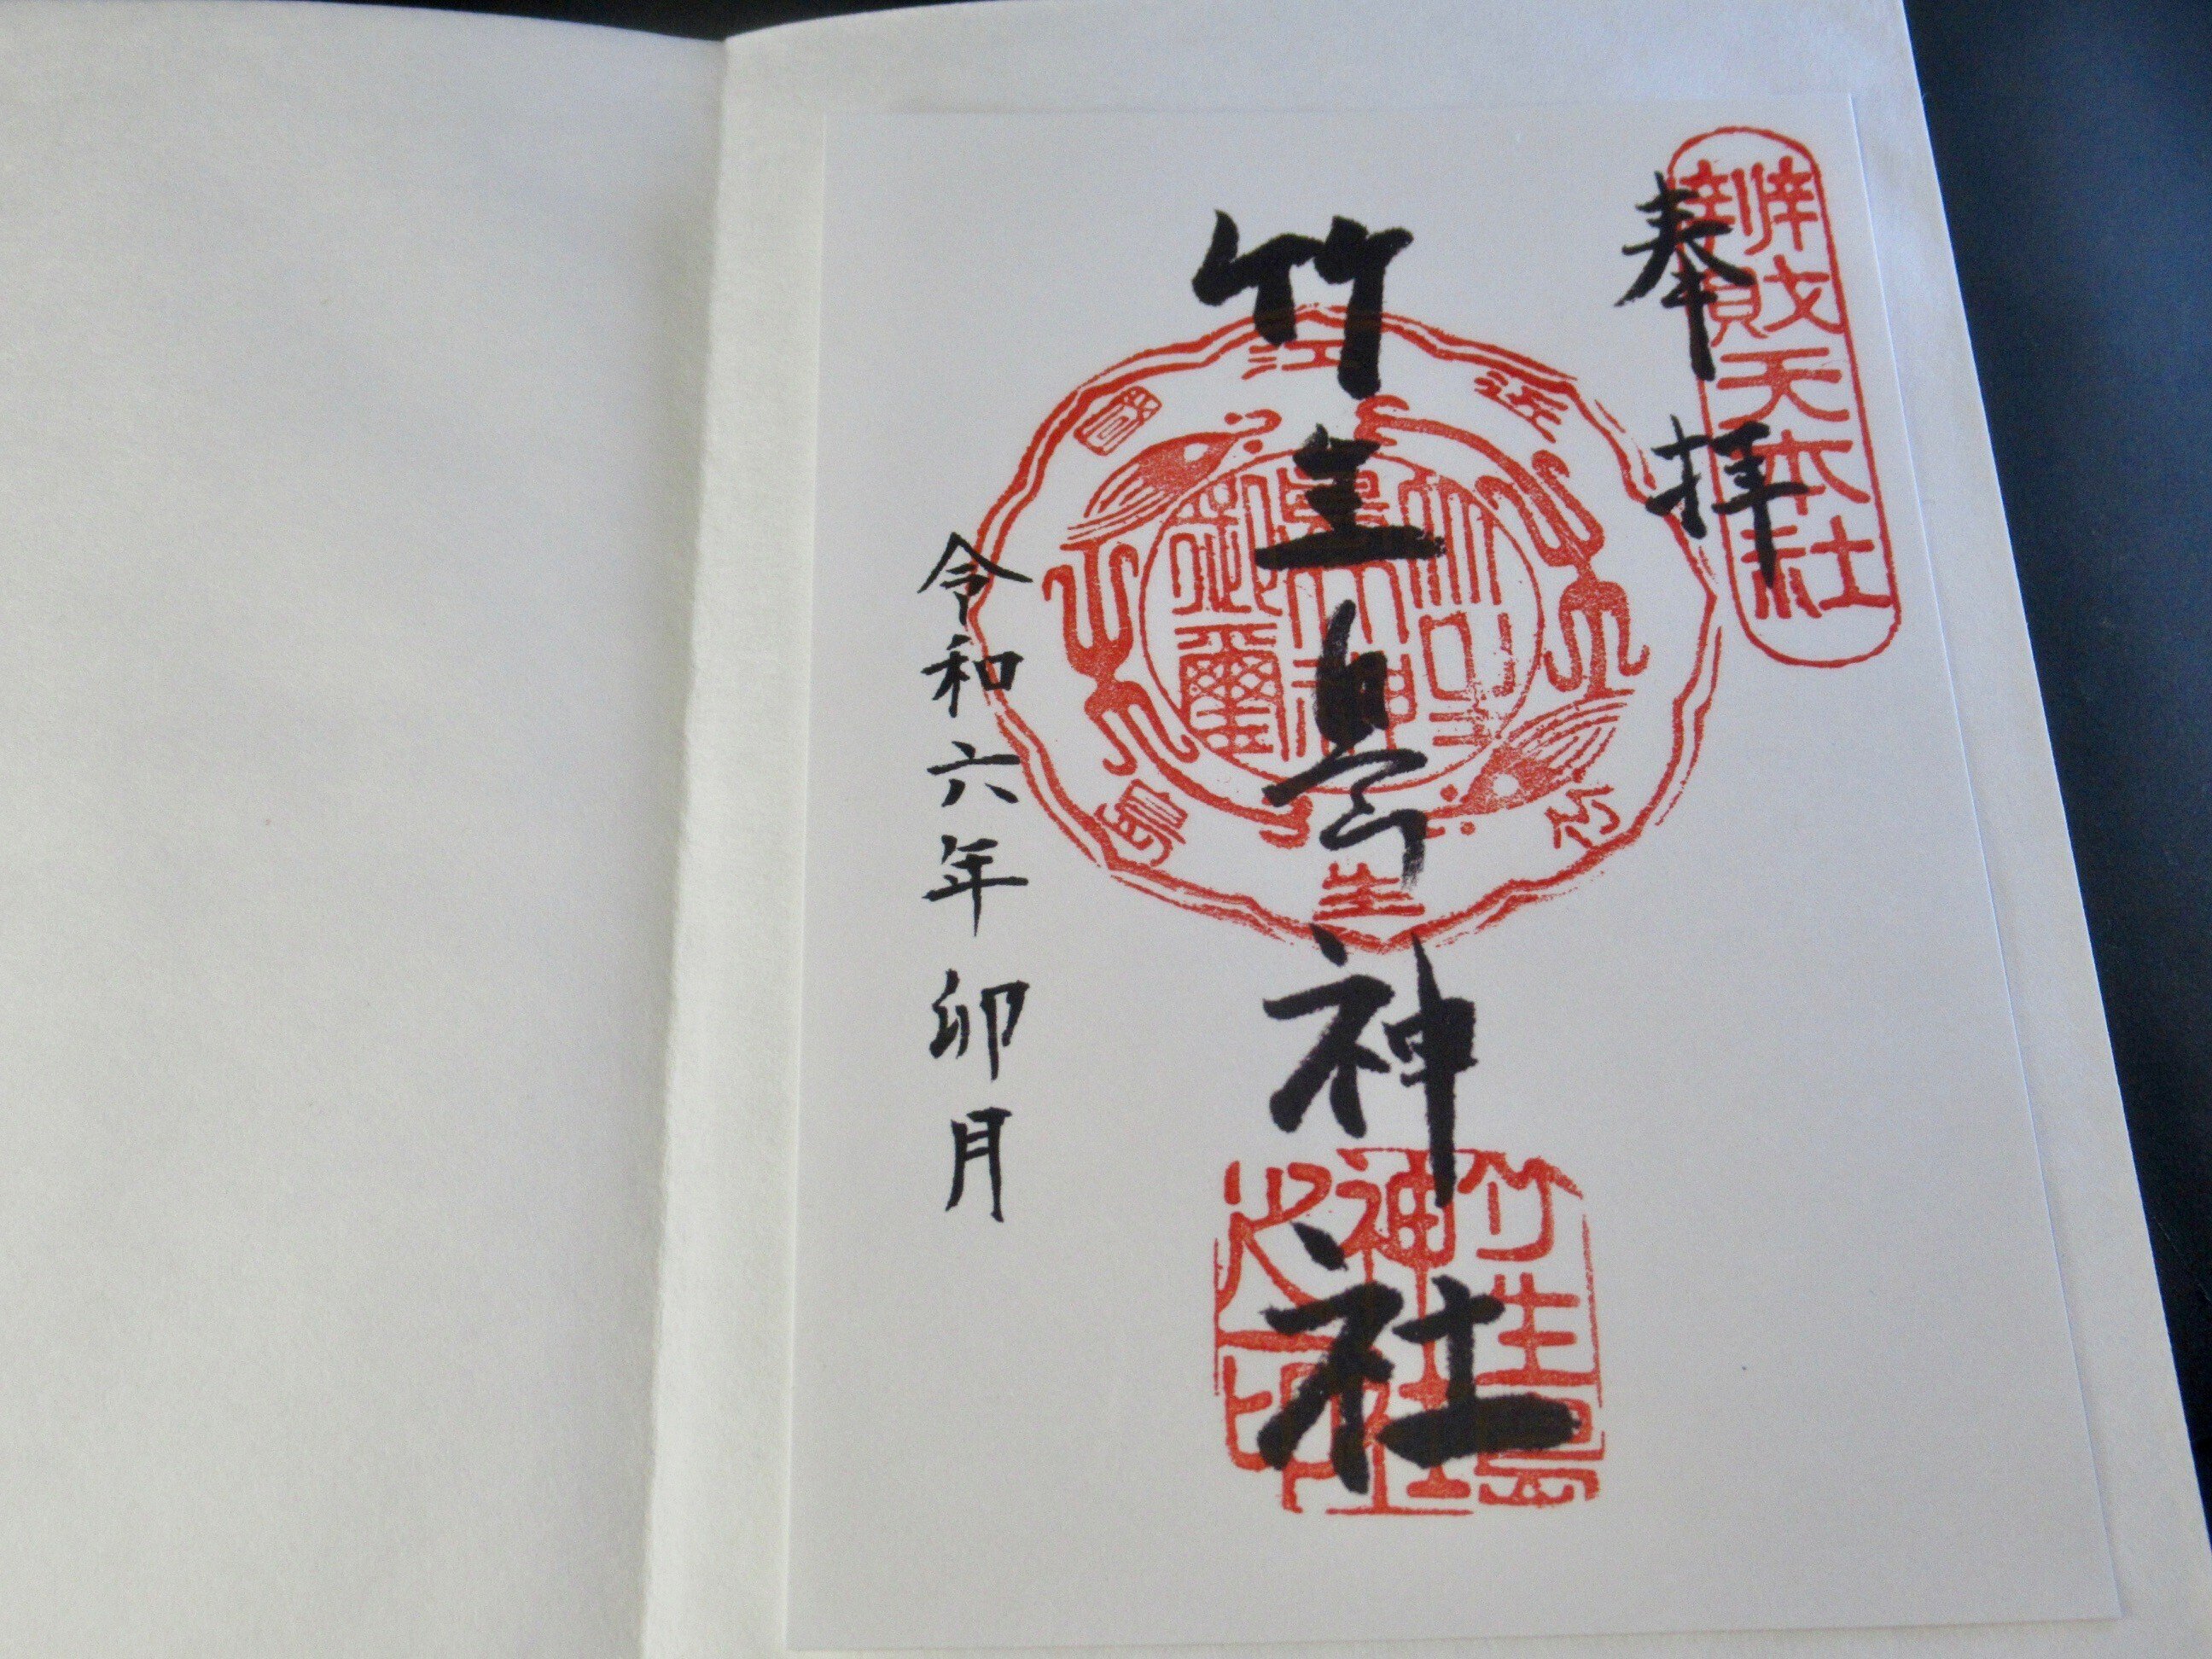 奉拝
辨財天本社
竹生島神社
近江國
竹生島
竹生島神社之印
令和六年卯月